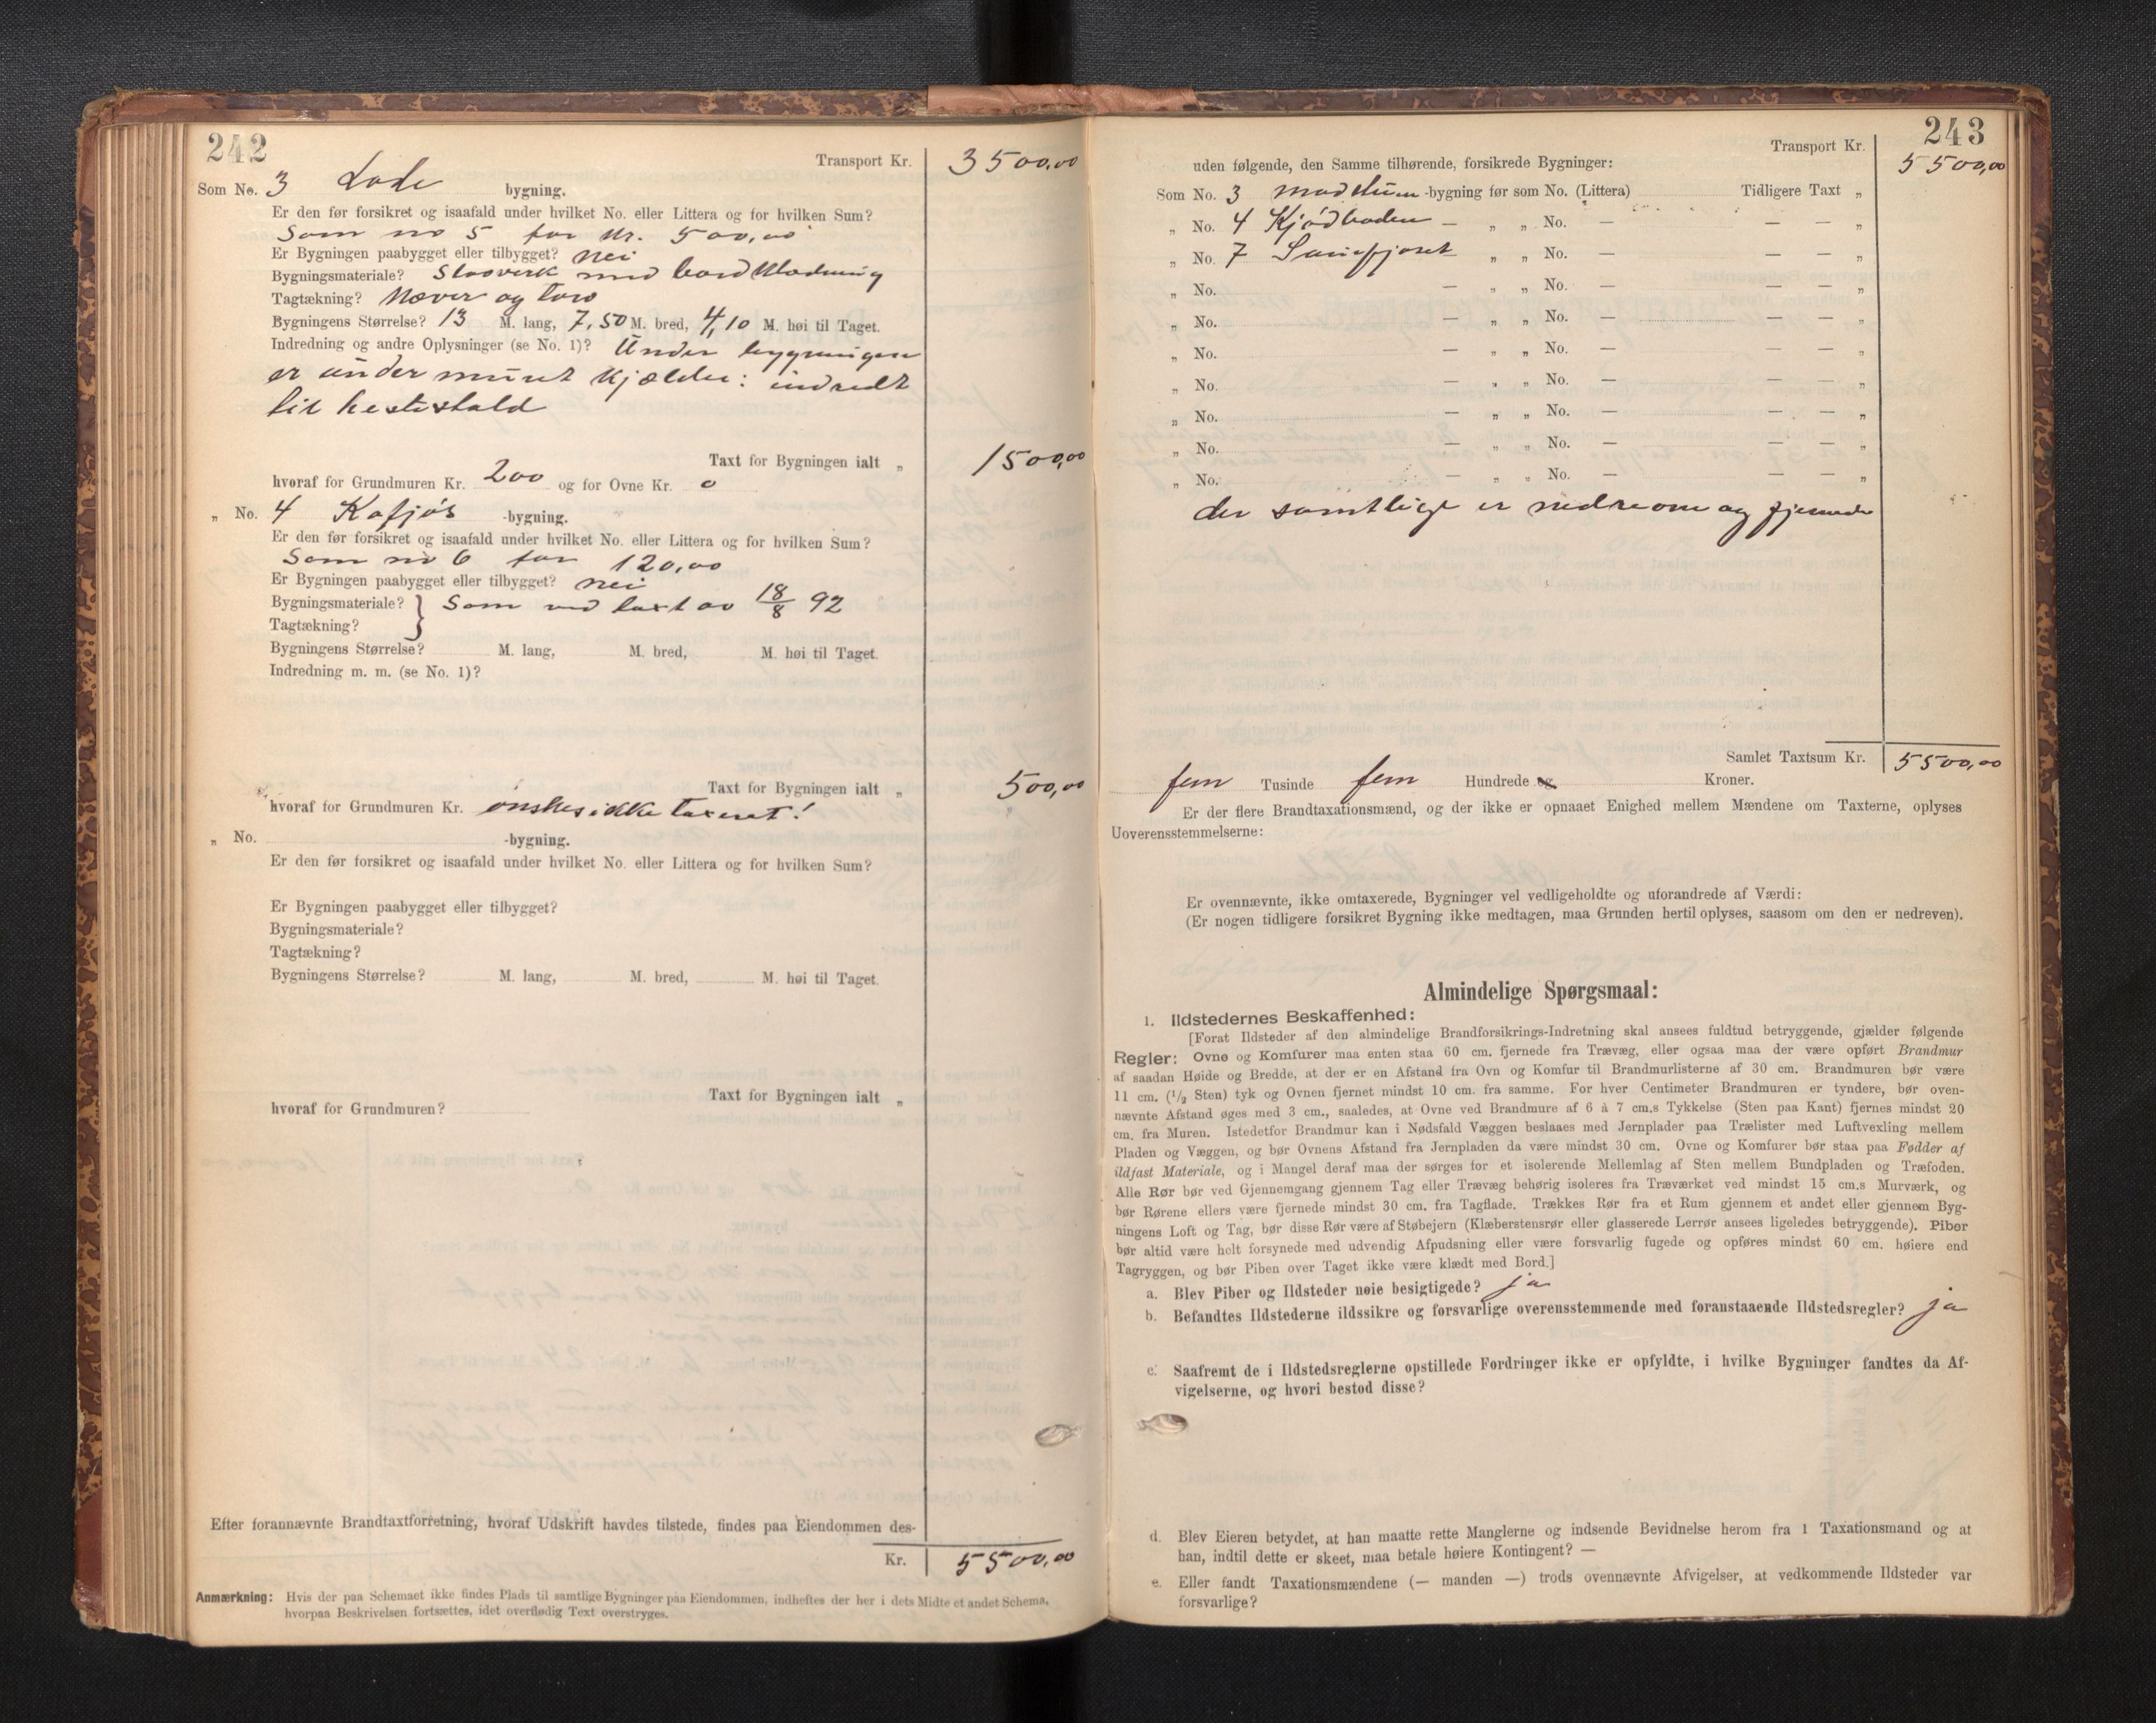 242
Transport Kr. 3500,00
Som No. 3 Lade bygning.
Er den før forsikret og isaafald under hvilket No. eller Littera og for hvilken Sum?
Som no 5 for kr. 500,00
Er Bygningen paabygget eller tilbygget? nei
Bygningsmateriale? Stavverk med bordklædning
Tagtækning? Næver og torv
Bygningens Størrelse? 13 M. lang, 7,50 M. bred, 4,10 M. høi til Taget.
Indredning og andre Oplysninger (se No. 1)? Under bygningen
er under muret kjælder: indredt
til hestestald
Taxt for Bygningen ialt „ 1500,00
hvoraf for Grundmuren Kr. 200 og for Ovne Kr. 0
„ No. 4 Kofjøs -bygning.
Er den før forsikret og isaafald under hvilket No. eller Littera og for hvilken Sum?
Som no 6 for 120,00
Er Bygningen paabygget eller tilbygget? nei
Bygningsmateriale? } Som ved taxt av 18/8 92
Tagtækning?
Bygningens Størrelse? M. lang, M. bred, M. høi til Taget.
Indredning m. m. (se No. 1)?
Taxt for Bygningen ialt „ 500,00
hvoraf for Grundmuren Kr. ønskes ikke taxeret! „
„ No. -bygning.
Er den før forsikret og isaafald under hvilket No. eller Littera og for hvilken Sum?
Er Bygningen paabygget eller tilbygget?
Bygningsmateriale?
Tagtækning?
Bygningens Størrelse? M. lang, M. bred, M. høi til Taget.
Taxt for Bygningen ialt „
hvoraf for Grundmuren?
Efter forannævnte Brandtaxtforretning, hvoraf Udskrift havdes tilstede, findes paa Eiendommen des-
Kr. 5500,00
Anmærkning: Hvis der paa Schemaet ikke findes Plads til samtlige Bygninger paa Eiendommen, indheftes der her i dets Midte et andet Schema,
hvorpaa Beskrivelsen fortsættes, idet overflødig Text overstryges.
243
Transport Kr. 5500,00
uden følgende, den Samme tilhørende, forsikrede Bygninger:
Som No. 3 -bygning før som No. (Littera) Tidligere Taxt „
„ No. 4 Kjødboden — „ „ No. — — — „
„ No. 7 „ „ No. — — — „
„ No. — „ „ No. — — — „
„ No. — „ „ No. — — — „
„ No. — „ „ No. — — — „
„ No. — „ „ No. — — — „
„ No. — „ „ No. — — — „
„ No. — „ „ No. — — — „
„ No. — „ „ No. — — — „
der samtlige er og fjernede
Samlet Taxtsum Kr. 5500,00
fem Tusinde fem Hundrede og Kroner.
Er der flere Brandtaxationsmænd, og der ikke er opnaaet Enighed mellem Mændene om Taxterne, oplyses
Uoverensstemmelserne:
Er ovennævnte, ikke omtaxerede, Bygninger vel vedligeholdte og uforandrede af Værdi:
(Er nogen tidligere forsikret Bygning ikke medtagen, maa Grunden hertil oplyses, saasom om den er nedreven).
Almindelige Spørgsmaal:
1. Ildstedernes Beskaffenhed:
[Forat Ildsteder af den almindelige Brandforsikrings-Indretning skal ansees fuldtud betryggende, gjælder følgende
Regler: Ovne og Komfurer maa enten staa 60 cm. fjernede fra Trævæg, eller ogsaa maa der være opført Brandmur
af saadan Høide og Bredde, at der er en Afstand fra Ovn og Komfur til Brandmurlisterne af 30 cm. Brandmuren bør være
11 cm. (1/2 Sten) tyk og Ovnen fjernet mindst 10 cm. fra samme. For hver Centimeter Brandmuren er tyndere, bør oven-
nævnte Afstand øges med 3 cm., saaledes, at Ovne ved Brandmure af 6 à 7 cm.s Tykkelse (Sten paa Kant) fjernes mindst 20
cm. fra Muren. Istedetfor Brandmur kan i Nødsfald Væggen beslaaes med Jernplader paa Trælister med Luftvexling mellem
Pladen og Væggen, og bør Ovnens Afstand fra Jernpladen da være mindst 30 cm. Ovne og Komfurer bør staa paa Fødder af
ildfast Materiale, og i Mangel deraf maa der sørges for et isolerende Mellemlag af Sten mellem Bundpladen og Træfoden.
Alle Rør bør ved Gjennemgang gjennem Tag eller Trævæg behørig isoleres fra Træværket ved mindst 15 cm.s Murværk, og
bør Rørene ellers være fjernede mindst 30 cm. fra Tagflade. Trækkes Rør fra et Rum gjennem et andet eller gjennem Byg-
ningens Loft og Tag, bør disse Rør være af Støbejern (Klæberstensrør eller glasserede Lerrør ansees ligeledes betryggende). Piber
bør altid være helt forsynede med udvendig Afpudsning eller være forsvarlig fugede og opføres mindst 60 cm. høiere end
Tagryggen, og bør Piben over Taget ikke være klædt med Bord.]
a. Blev Piber og Ildsteder nøie besigtigede? ja
b. Befandtes Ildstederne ildssikre og forsvarlige overensstemmende med foranstaaende Ildstedsregler? ja
c. Saafremt de i Ildstedsreglerne opstillede Fordringer ikke er opfyldte, i hvilke Bygninger fandtes da Af-
vigelserne, og hvori bestod disse?
d. Blev Eieren betydet, at han maatte rette Manglerne og indsende Bevidnelse herom fra 1 Taxationsmand og at
han, indtil dette er skeet, maa betale høiere Kontingent? —
e. Eller fandt Taxationsmændene (— manden —) trods ovennævnte Afvigelser, at vedkommende Ildsteder var
forsvarlige?